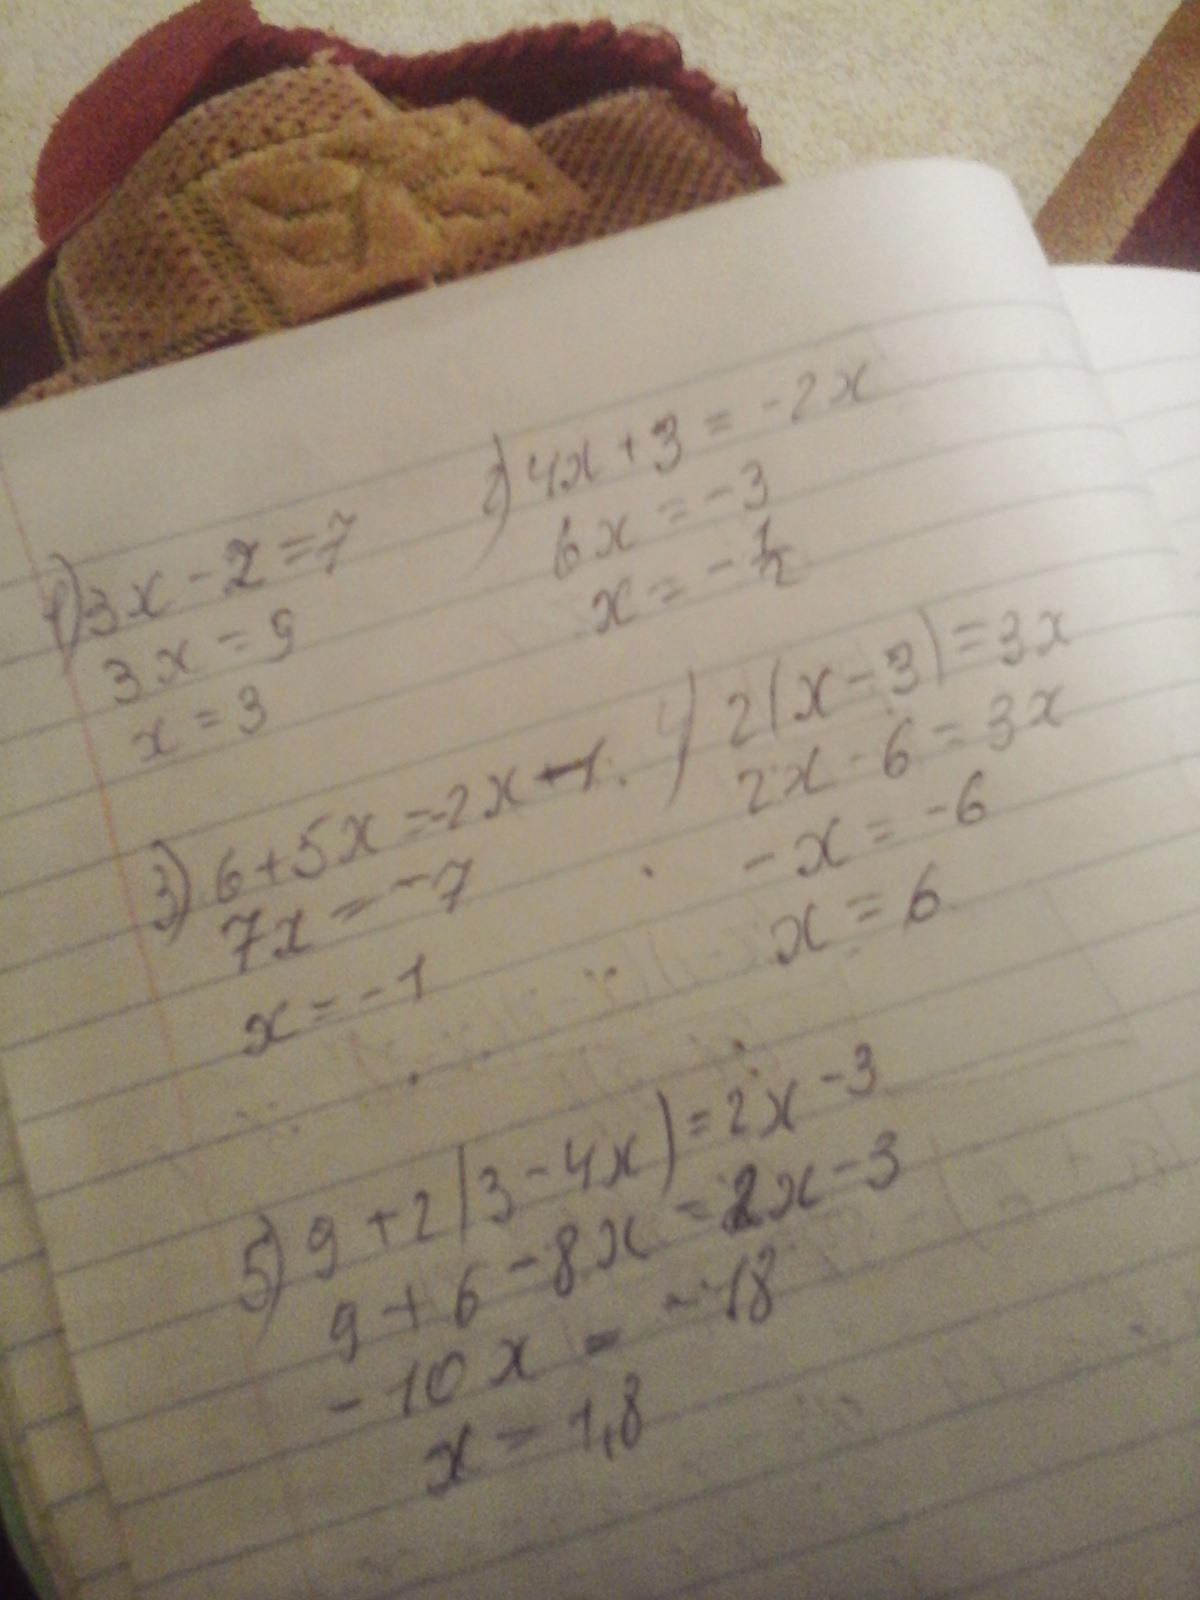 1) 3x - 2 = 7
3x = 9
x = 3
2) 4x + 3 = -2x
6x = -3
x = -1/2
3) 6 + 5x = -2x - 1
7x = -7
x = -1
4) 2(x - 3) = 3x
2x - 6 = 3x
-x = -6
x = 6
5) 9 + 2(3 - 4x) = 2x - 3
9 + 6 - 8x = 2x - 3
-10x = -18
x = 1,8